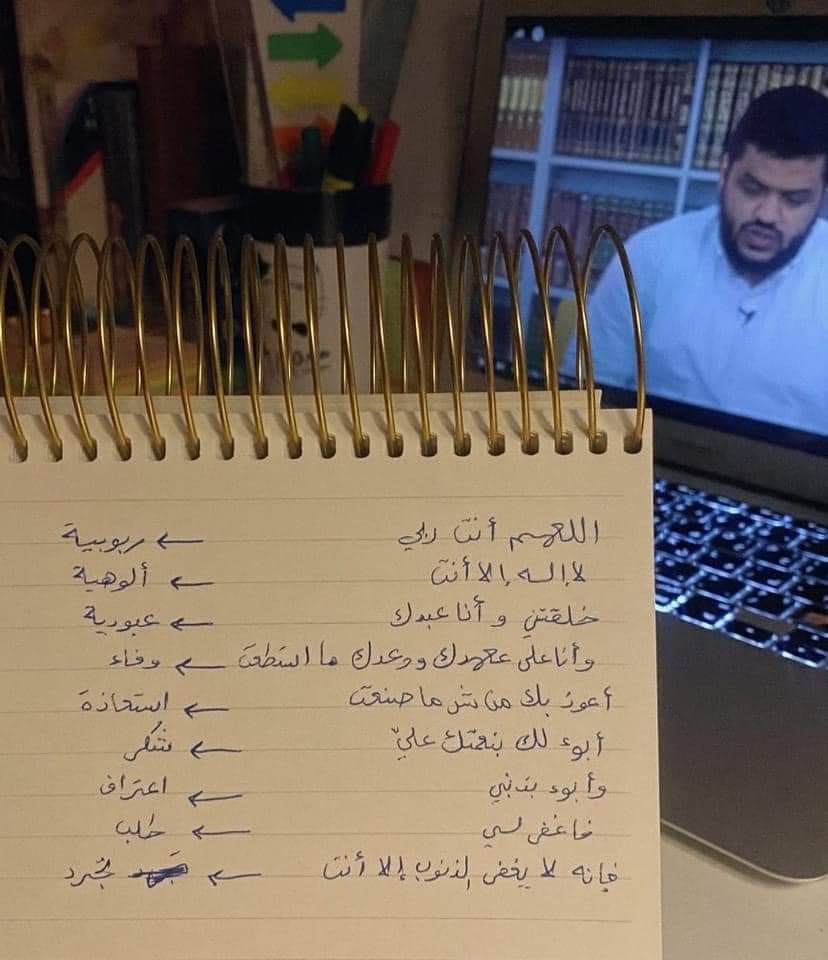 اللهم أنت ربي ← ربوبية
لا إله إلا أنت ← ألوهية
خلقتني وأنا عبدك ← عبودية
وأنا على عهدك ووعدك ما استطعت ← وفاء
أعوذ بك من شر ما صنعت ← استعاذة
أبوء لك بنعمتك عليّ ← شكر
وأبوء بذنبي ← اعتراف
فاغفر لي ← طلب
فإنه لا يغفر الذنوب إلا أنت ← تجرد